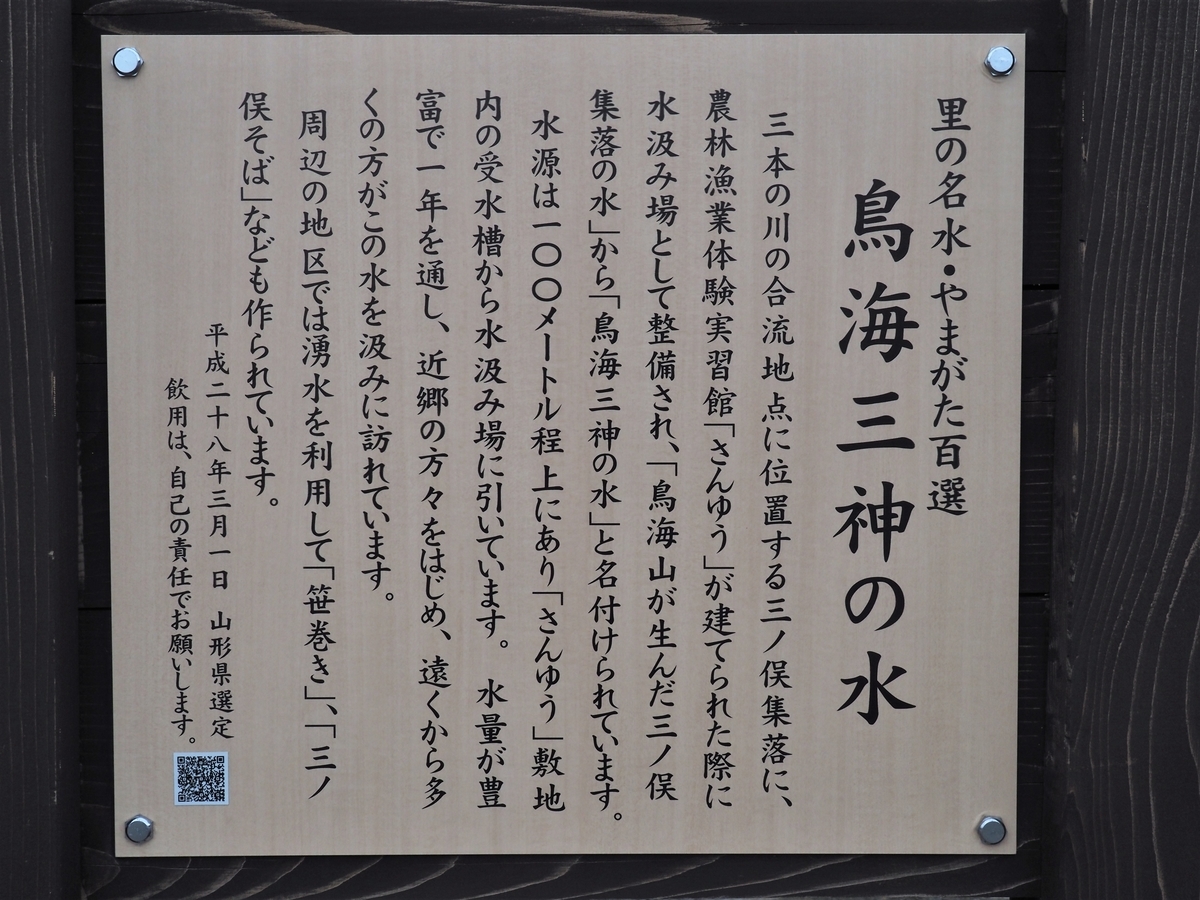 里の名水・やまがた百選
鳥海三神の水
三本の川の合流地点に位置する三ノ俣集落に、
農林漁業体験実習館「さんゆう」が建てられた際に
水汲み場として整備され、「鳥海山が生んだ三ノ俣
集落の水」から「鳥海三神の水」と名付けられています。
水源は一〇〇メートル程上にあり「さんゆう」敷地
内の受水槽から水汲み場に引いています。 水量が豊
富で一年を通し、近郷の方々をはじめ、遠くから多
くの方がこの水を汲みに訪れています。
周辺の地区では湧水を利用して「笹巻き」、「三ノ
俣そば」なども作られています。
平成二十八年三月一日 山形県選定
飲用は、自己の責任でお願いします。